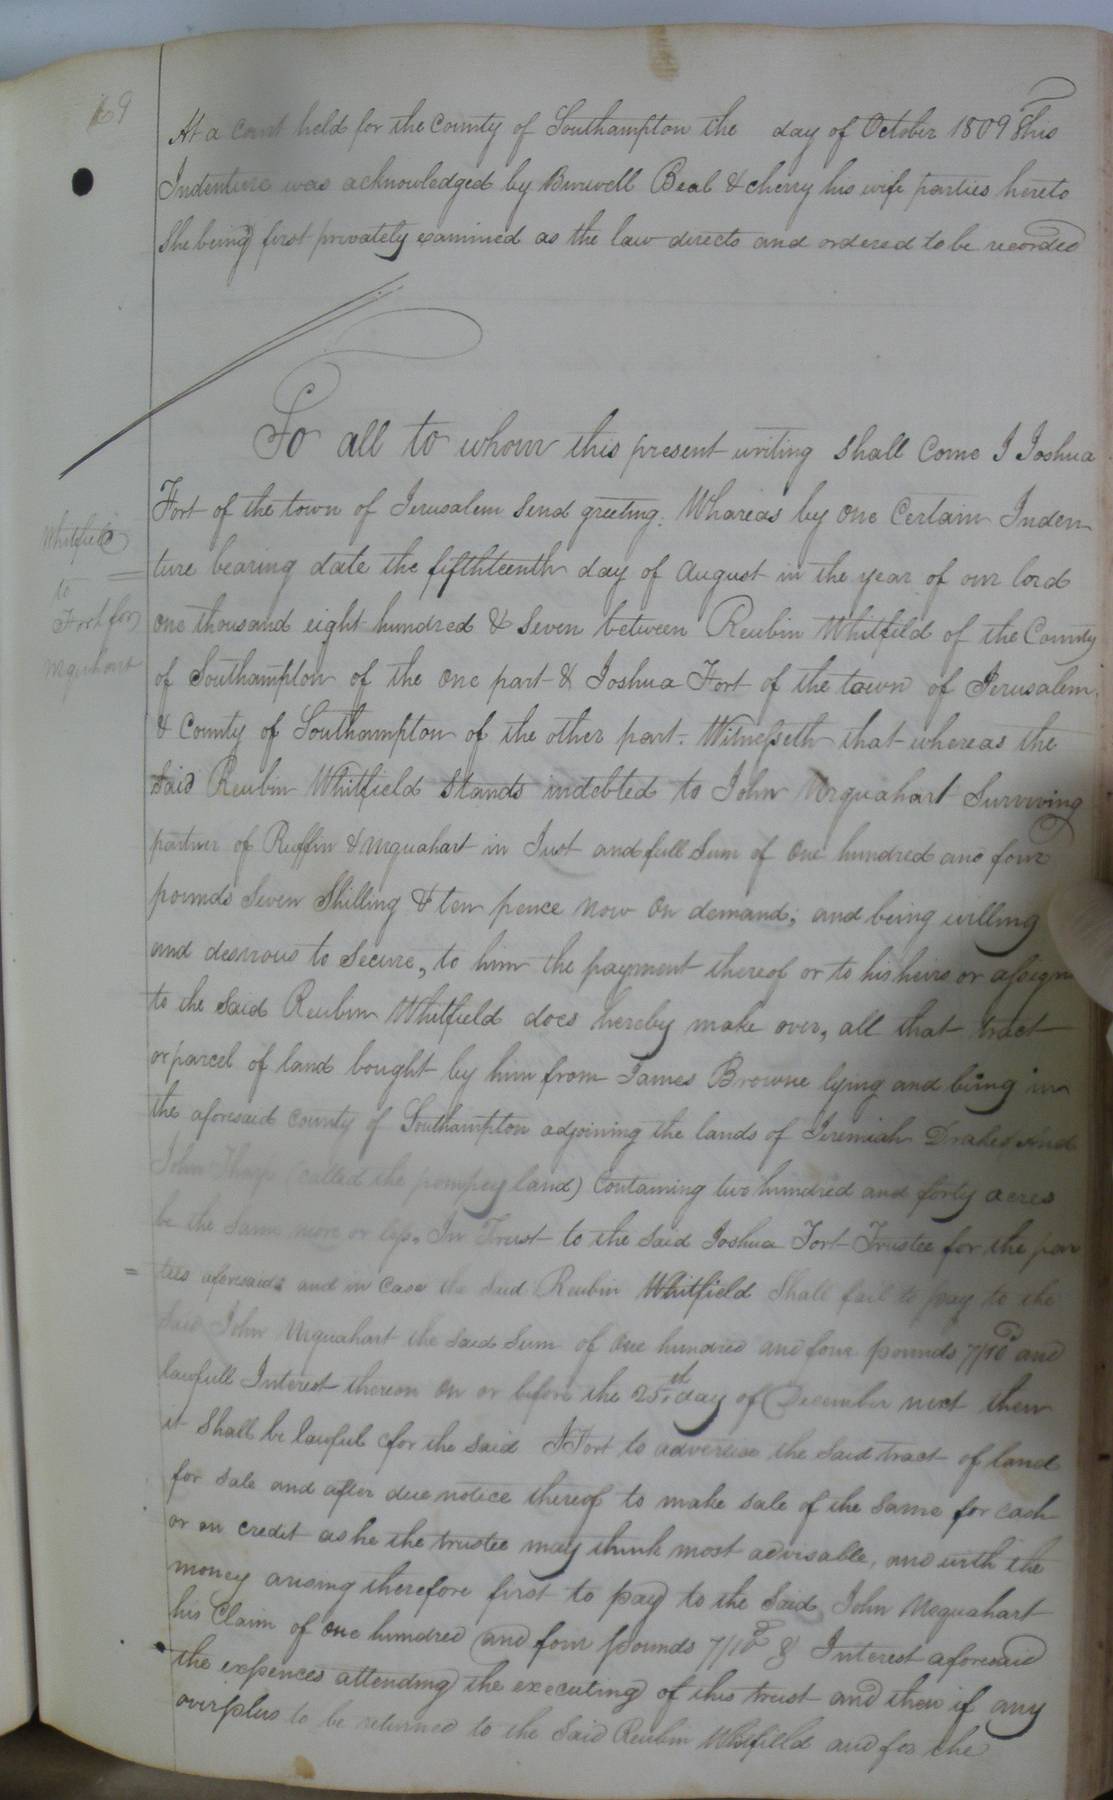 169
At a Court held for the County of Southampton the day of October 1809 This
Indenture was acknowledged by Burwell Beal & Cherry his wife parties hereto
She being first privately examined as the law directs and ordered to be recorded
To all to whom this present writing shall Come I Joshua
Fort of the town of Jerusalem Send greeting. Whareas by one Certain Inden
ture bearing date the fifthteenth day of August in the year of our lord
one thousand eight hundred & Seven between Reubin Whitfild of the County
of Southampton of the one part & Joshua Fort of the town of Jerusalem
& County of Southampton of the other part. Witnesseth that whereas the
Said Reubin Whitfield Stands indebted to John Urquahart Surviving
partner of Ruffin & Urquahart in Just and full Sum of One hundred and four
pounds Seven Shilling & ten pence Now On demand; and being willing
and desirous to Secure, to him the payment thereof or to his heirs or assigns
to the Said Reubin Whitfield does hereby make over, all that tract
or parcel of land bought by him from James Browne lying and being in
the aforesaid County of Southampton adjoining the lands of Jeremiah Drakes and
John Tharp (called the pompey land) Containing two hundred and forty acres
be the Same more or less. In Trust to the Said Joshua Fort Trustee for the par
= ties aforesaid: and in Case the Said Reubin Whitfield Shall fail to pay to the
Said John Urquahart the Said Sum of One hundred and four pounds 7/10d and
lawfull Interest thereon On or before the 25th day of December next then
it Shall be lawful for the Said J Fort to advertise the Said tract of land
for Sale and after due notice thereof to make Sale of the Same for Cash
or on Credit as he the trustee may think most advisable, and with the
money arising therefore first to pay to the Said John Urquahart
his Claim of one hundred and four pounds 7/10d & Interest aforesaid
the expences attending the executing of this trust and then if any
overplus to be returned to the Said Reubin Whitfield and for the
Whitfield
to
Fort for
Urquhart